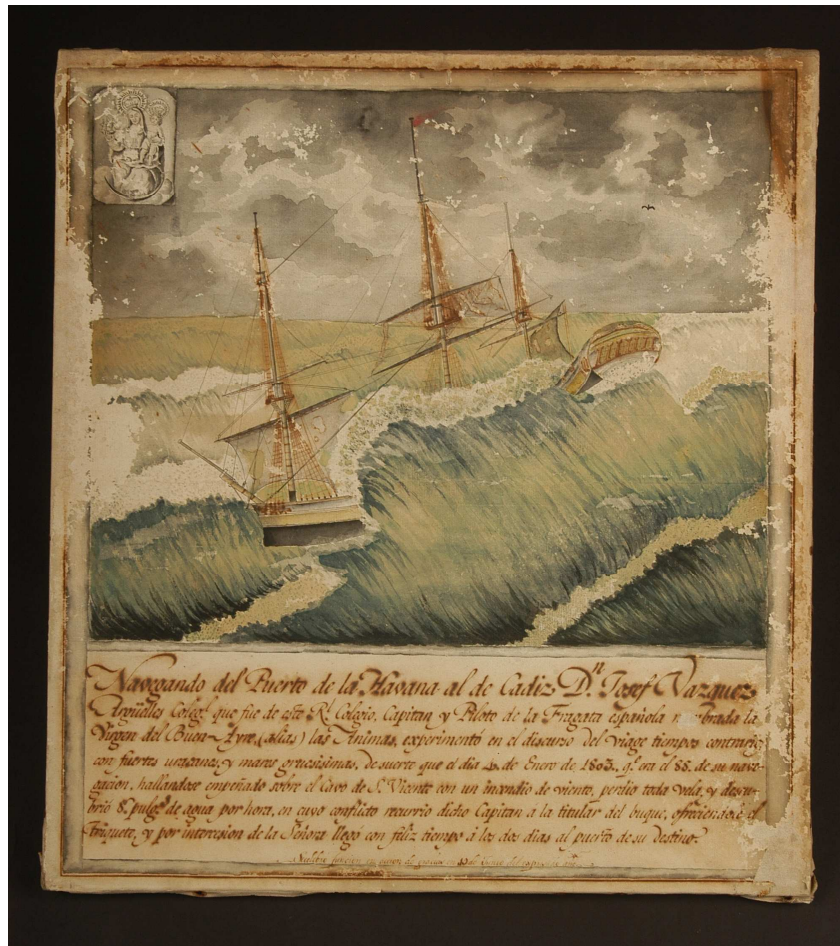 Navegando del Puerto de la Havana al de Cadiz Dⁿ Josef Vazquez
Arguelles Colegˡ que fue de este Rˡ Colegio, Capitan y Piloto de la Fragata española nombrada la
Virgen del Buen-Ayre, (alias) las Animas, experimentó en el discurso del viage tiempos contrarios
con fuertes uracanes, y mares gruesisimas, de suerte que el dia de Enero de 1803. qᵉ era el 88. de su nave-
gacion, hallandose empeñado sobre el Cavo de S. Vicente con un incendio de viento, perdio toda vela, y descu-
brió 8. pulgˢ de agua por hora, en cuyo conflicto recurrio dicho Capitan a la titular del buque, ofreciendole el
Triquete, y por intercesion de la Señora llegó con feliz tiempo á los dos dias al puerto de su destino.
en de Enero del